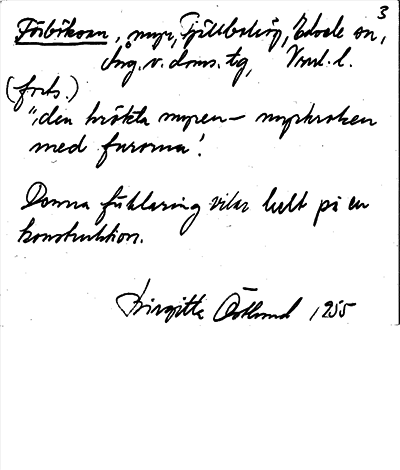 3
, myr, Edsele sn,
Ång. v. doms. tg, Vnrl. l.
(forts.)
"den krökta myren – myrkroken
med furorna".
Denna förklaring vilar helt på en
konstruktion.
Birgitta Östlund 1955